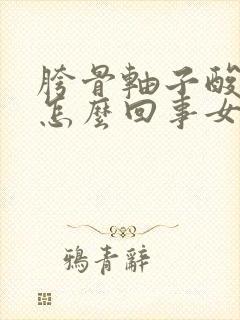 胯骨軸子酸
怎麼回事女
鴉青辭